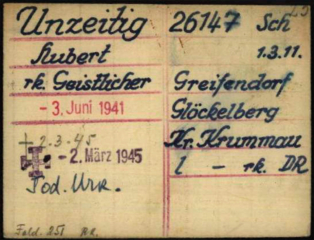 Unzeitig 26147 Sch
Hubert 1.3.11.
rk. Geistlicher Greifendorf
- 3. Juni 1941 Glöckelberg
+ 2.3.45 Kr. Krummau
- 2. März 1945 l - rk. DR
Tod. Urk.